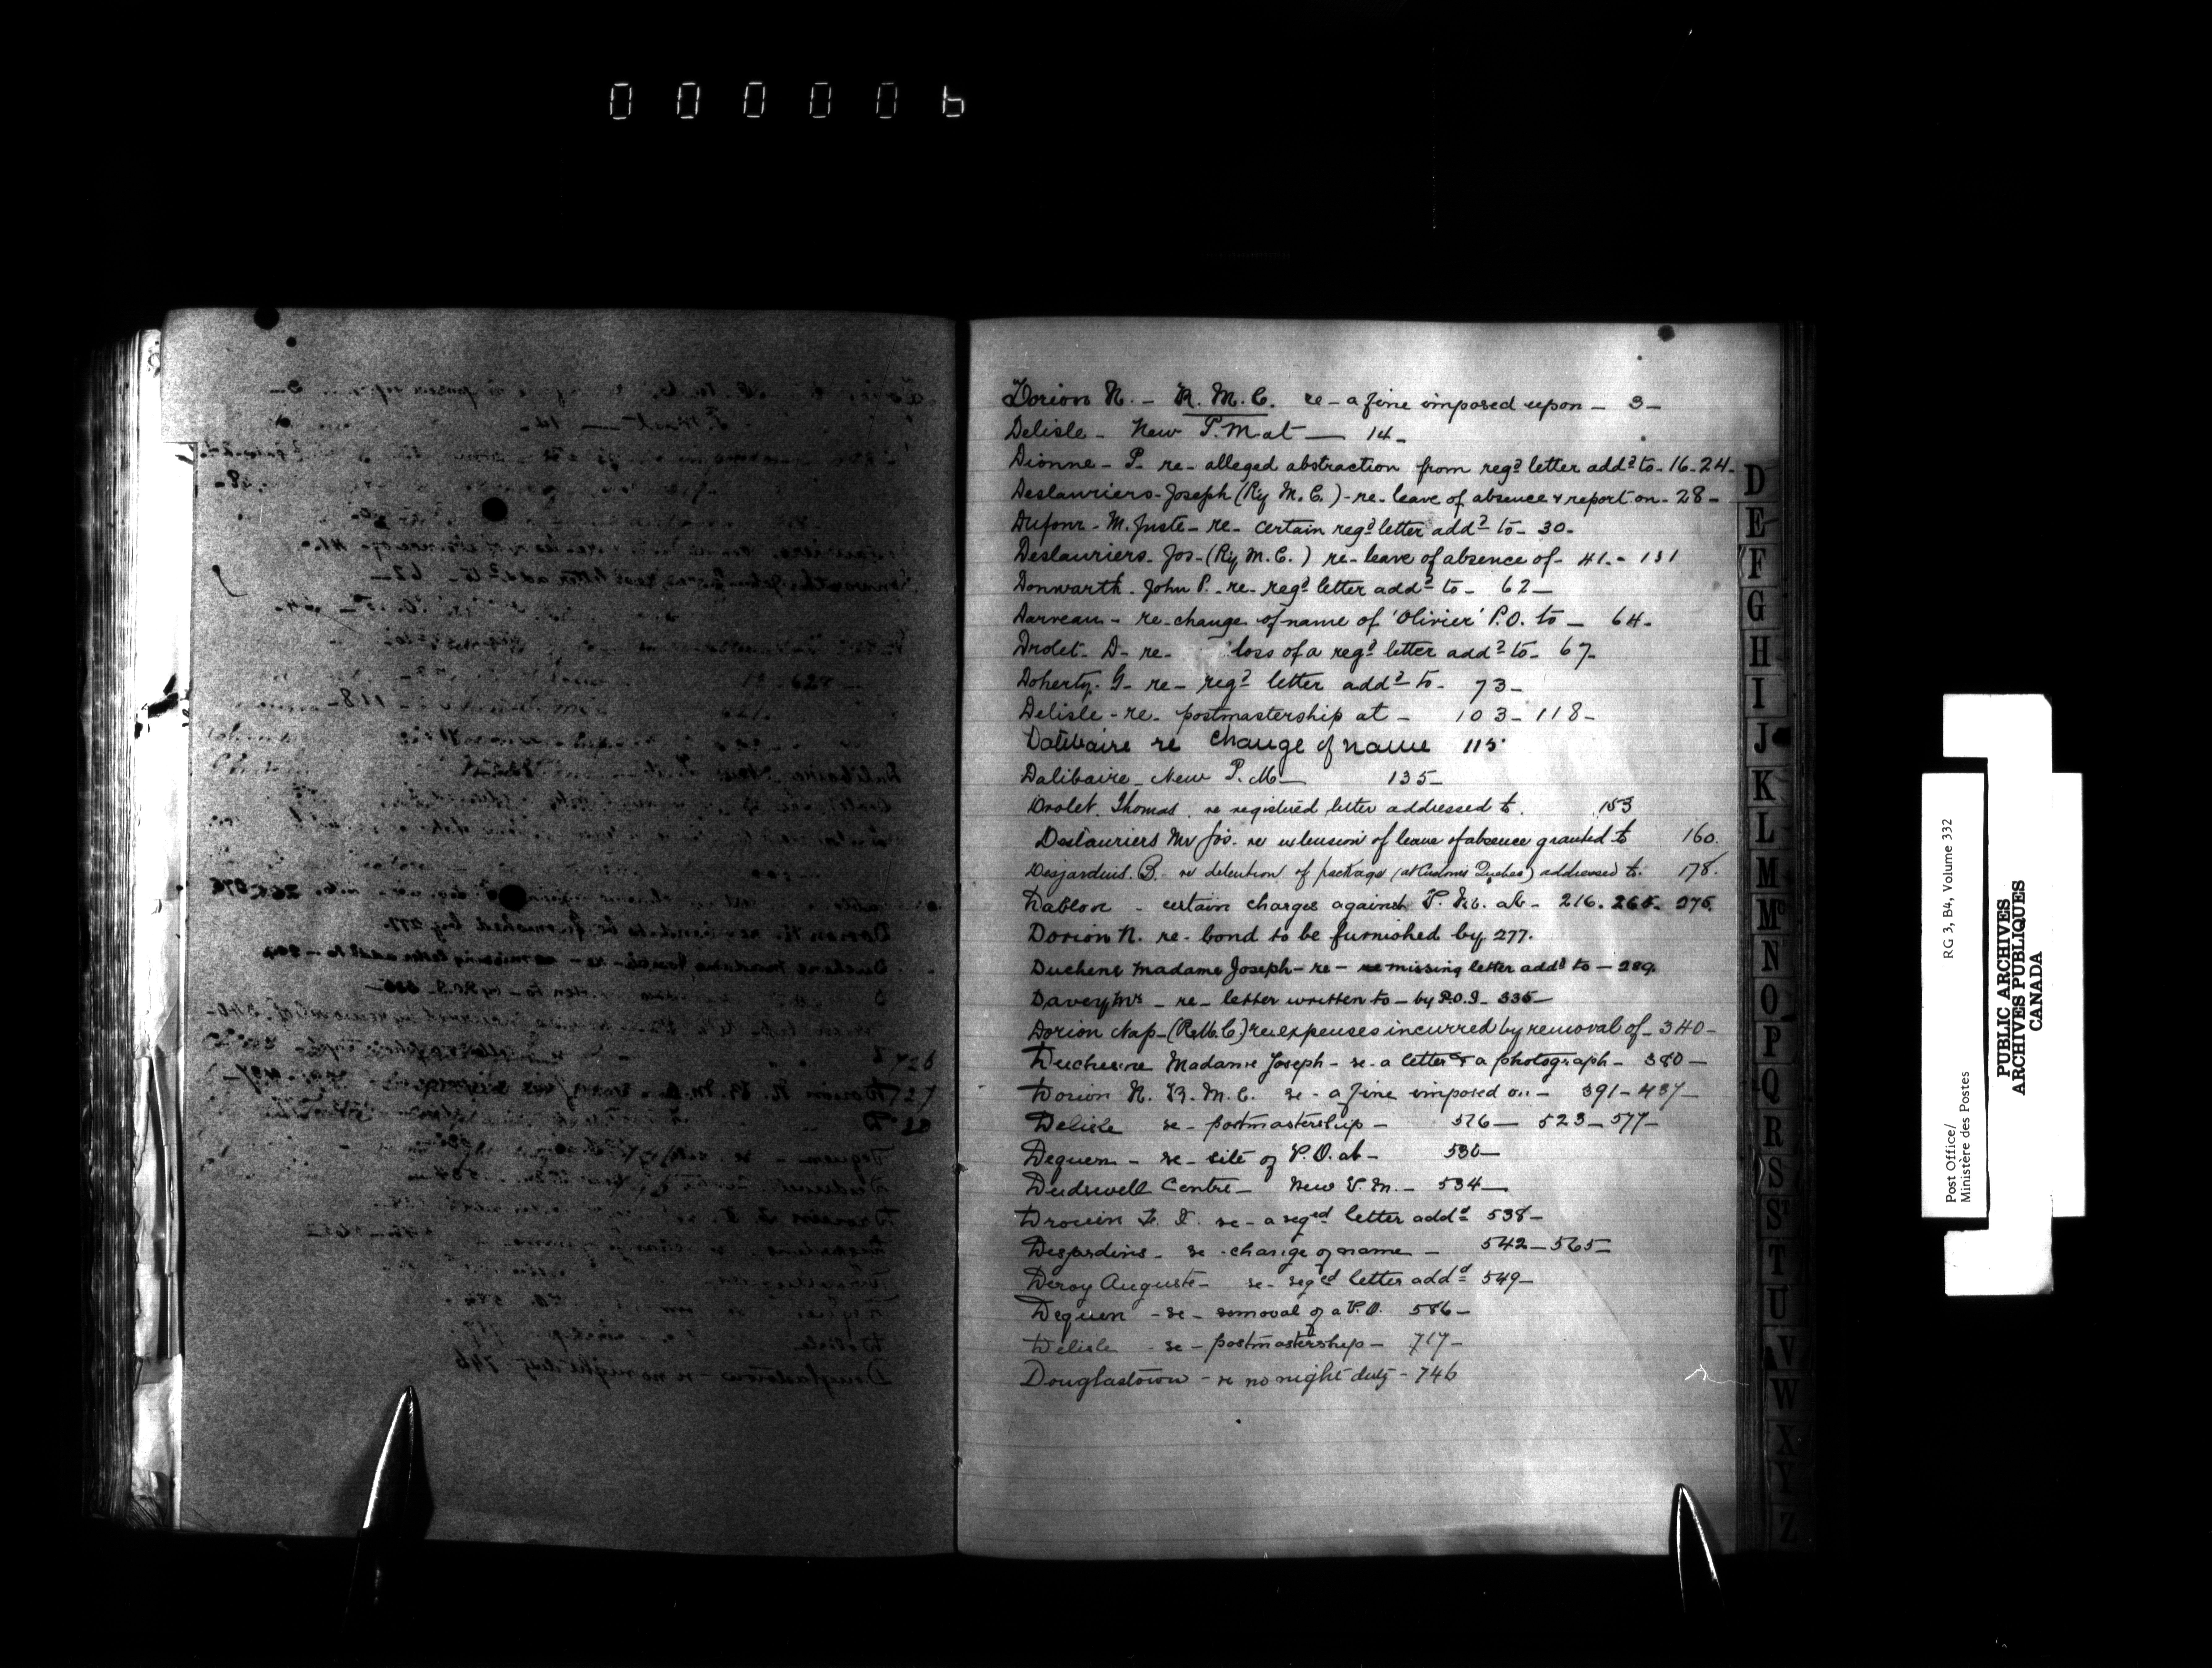 000006
Dorion N. - R. M. C. re - a fine imposed upon - 3 -
Delisle - New P. M at — 14 -
Dionne - P. re - alleged abstraction from regd letter addd to - 16 - 24 -
Deslauriers - Joseph (Ry M. C.) - re - leave of absence & report on - 28 -
Dufour - M. Juste - re - certain regd letter addd to - 30 -
Deslauriers - Jos - (Ry M. C.) re - leave of absence of - 41 - 131
Donwarth - John P. - re - regd letter addd to - 62 -
Darveau - re - change of name of 'Olivier' P.O. to - 64 -
Drolet - D - re - loss of a regd letter addd to - 67 -
Doherty - G - re - regd letter addd to - 73 -
Delisle - re - postmastership at - 103 - 118 -
Dalibaire re change of name 115
Dalibaire - New P. M — 135 -
Drolet Thomas. re registered letter addressed to. 153
Deslauriers Mr Jos. re extension of leave of absence granted to 160.
Desjardins. B. re detention of package (at Customs Quebec) addressed to. 178.
Dablon - certain charges against P. M. at - 216. 265. 275.
Dorion N. re - bond to be furnished by 277.
Duchene Madame Joseph - re - missing letter addd to - 289.
Davey Mrs - re - letter written to - by P.O.I - 335 -
Dorion Nap - (R.M.C) re expenses incurred by removal of - 340 -
Duchesne Madame Joseph - re - a letter & a photograph - 380 -
Dorion N. R. M. C. re - a fine imposed on - 391 - 437 -
Delisle re - postmastership - 516 - 523 - 577 -
Dequen - re - site of P.O. at - 530 -
Dudswell Centre - New P. M. - 534 -
Drouin F. re - a reged letter addd 538 -
Desjardins - re - change of name - 542 - 565 -
Deroy Auguste - re - reged letter addd 549 -
Dequen - re - removal of a P.O. 586 -
Delisle - re - postmastership - 717 -
Douglastown - re no night duty - 746
D
E
F
G
H
I
J
K
L
M
Mc
N
O
P
Q
R
S
ST
T
U
V
W
X
Y
Z
Post Office/
Ministère des Postes
RG 3, B4, Volume 332
PUBLIC ARCHIVES
ARCHIVES PUBLIQUES
CANADA